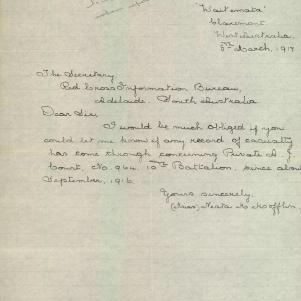 "Waitemata"
Claremont
West Australia
8th March, 1917
The Secretary,
Red Cross Information Bureau,
Adelaide. South Australia
Dear Sir,
I would be much obliged if you
could let me know if any record of casualty
has come through concerning Private A. J.
Court, No. 964. 10th Battalion, since about
September, 1916.
Yours sincerely,
(Miss)